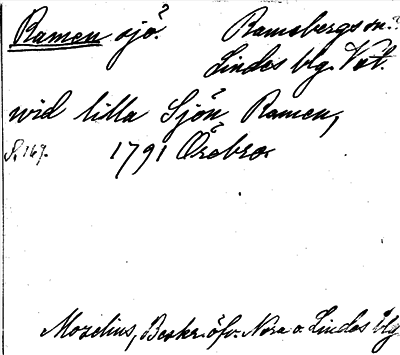 Ramen sjö? Ramsbergs sn.?
Lindes blg. Vstl.
wid lilla Sjön Ramen,
S. 167. 1791 Örebro
Mozelius, Beskr. öfv. Nora o. Lindes blg